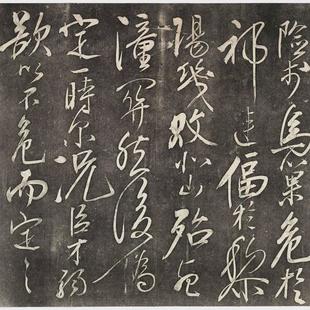 險於烏巢危於
祁連偪於黎
陽幾敗北山殆死
潼關然後偽
定一時尔況臣才弱
欲以不危而定之